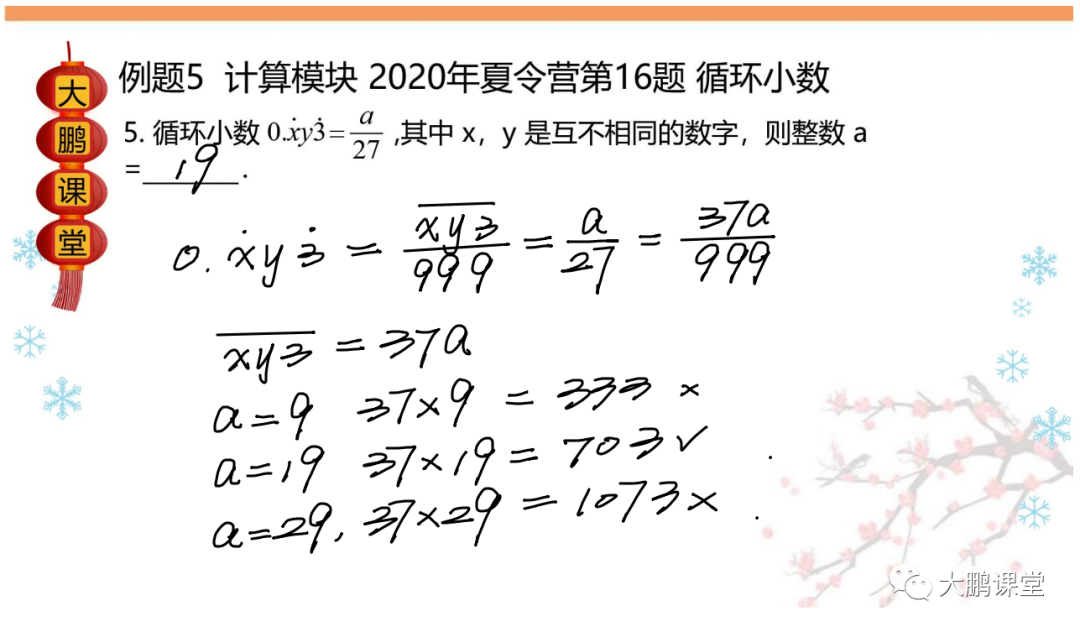 大鹏课堂
例题5 计算模块 2020年夏令营第16题 循环小数
5. 循环小数 0.ẋy 3̇ = a/27 ,其中 x，y 是互不相同的数字，则整数 a
= 19 .
0.ẋy3̇ = xy3/999 = a/27 = 37a/999
xy3 = 37a
a=9 37×9 = 333 ×
a=19 37×19 = 703 ✓
a=29, 37×29 = 1073 ×
大鹏课堂